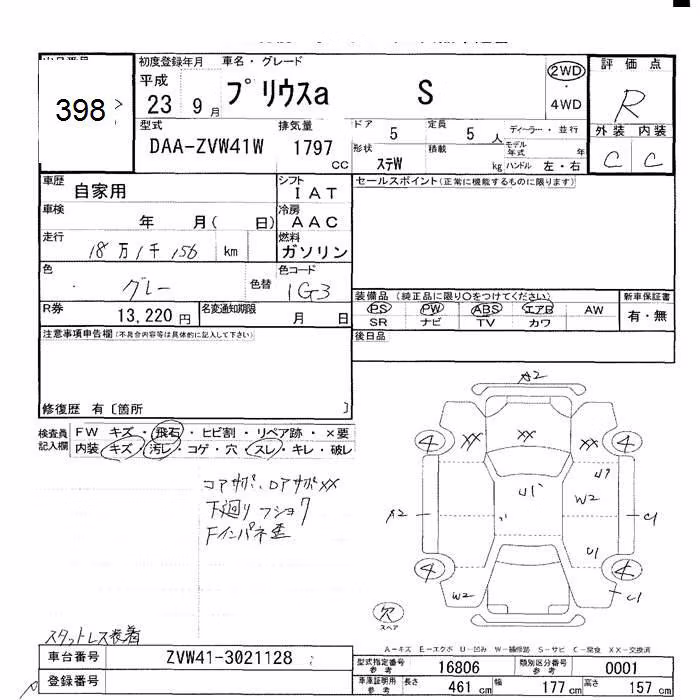 初度登録年月 車名・グレード 評価点
398 平成 23 9月 プリウスα S 2WD・4WD R
外装 内装
C C
型式 DAA-ZVW41W 排気量 1797 cc
ドア 5 定員 5人 ディーラー・並行
形状 ステW 積載 kg モデル年式 年 ハンドル 左・右
車歴 自家用 シフト IAT セールスポイント(正常に機能するものに限ります)
車検 年 月( 日) 冷房 AAC
走行 18万1千156 km 燃料 ガソリン
色 グレー 色替 色コード 1G3
装備品 (純正品に限り○をつけてください) 新車保証書
PS PW ABS エアB AW 有・無
SR ナビ TV カワ
R券 13,220円 名変通知期限 月 日
後日品
注意事項申告欄(不具合内容等は具体的に記入して下さい)
修復歴 有〔箇所 〕
検査員記入欄 FW キズ・飛石・ヒビ割・リペア跡・×要
内装 キズ・汚レ・コゲ・穴・スレ・キレ・破レ
コアサポ、ロアサポXX
下廻りフショク
Fインパネ歪
A2
4 XX XX 4
U1
W2
A2 C1
U1
4 4
W2 C1
欠
スペア
スタットレス装着
A-キズ E-エクボ U-凹み W-補修跡 S-サビ C-腐食 XX-交換済
車台番号 ZVW41-3021128
型式指定番号 参考 16806 類別区分番号 参考 0001
登録番号
車庫証明用 参考 長さ 461 cm 幅 177 cm 高さ 157 cm